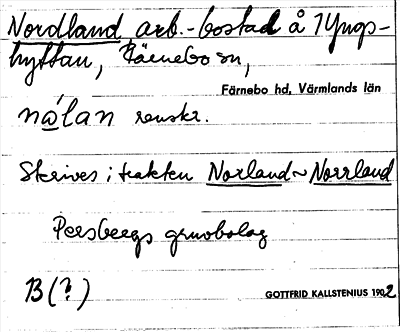 Nordland, arb.-bostad å Yngs-
hyttan, Färnebo sn,
Färnebo hd, Värmlands län
nálan renskr.
Skrives i trakten Norland ~ Norrland
Persbergs gruvbolag
B (?)
GOTTFRID KALLSTENIUS 1902